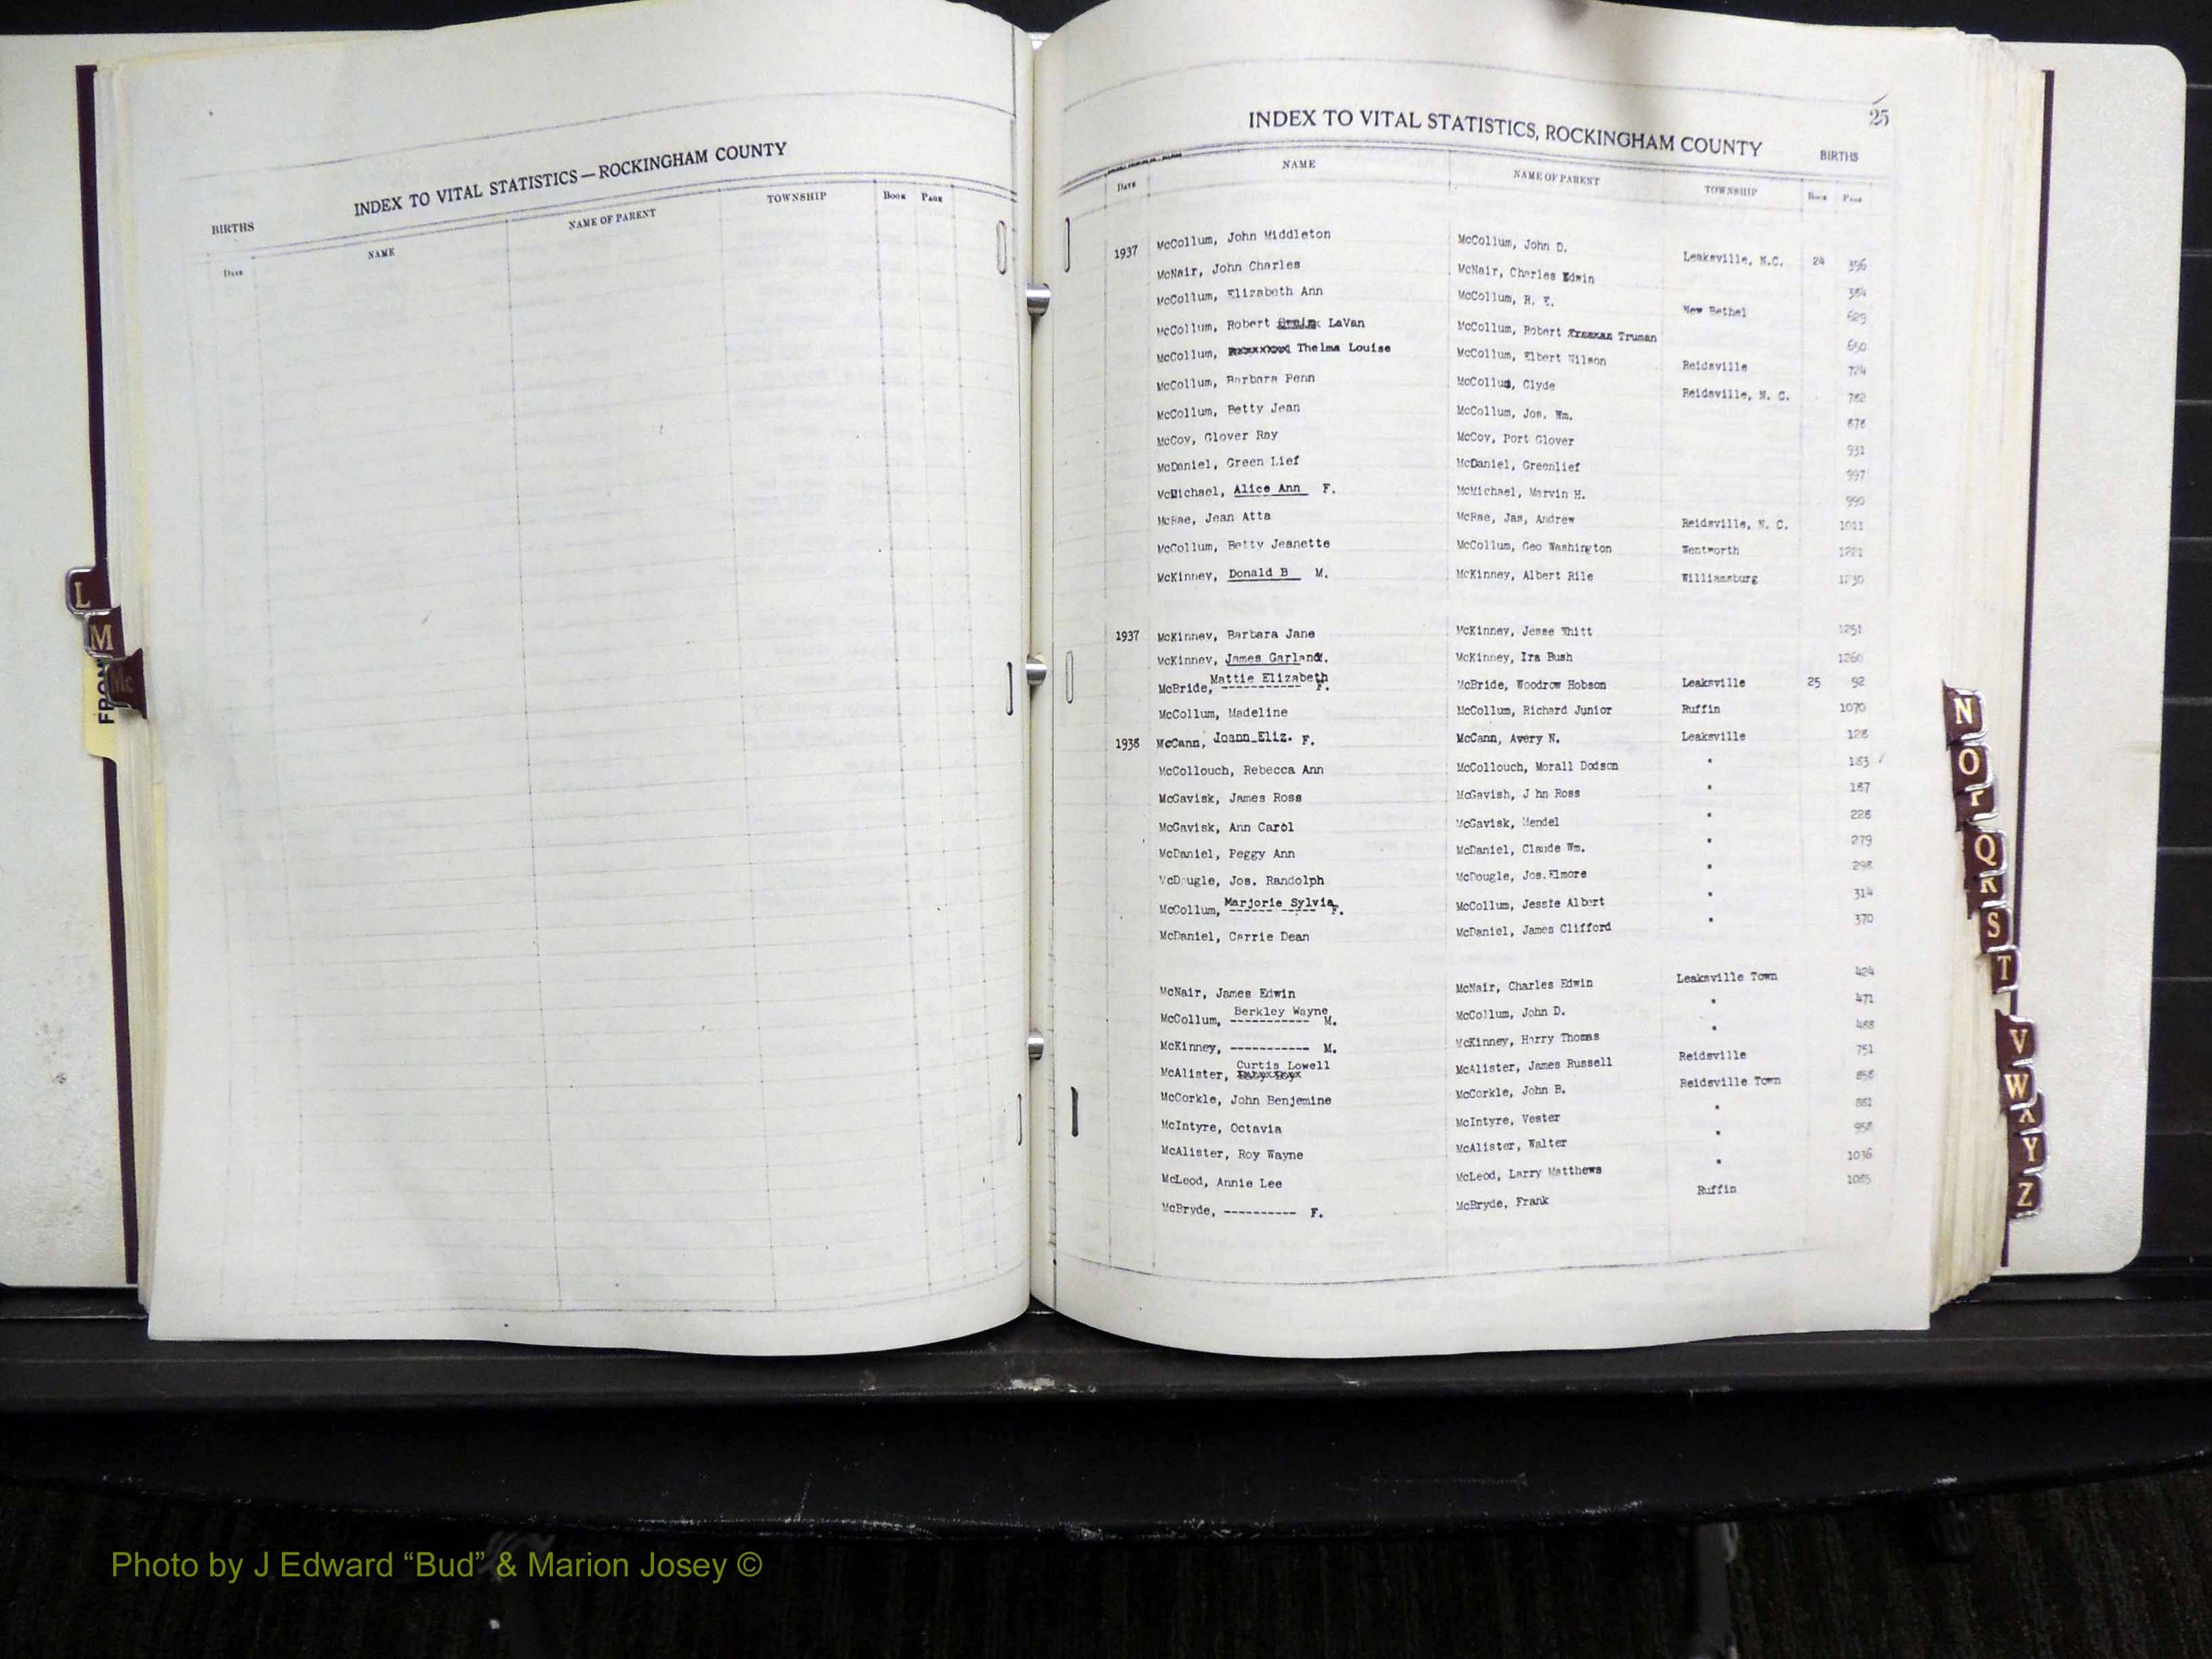 INDEX TO VITAL STATISTICS—ROCKINGHAM COUNTY
BIRTHS
DATE NAME NAME OF PARENT TOWNSHIP BOOK PAGE
25
INDEX TO VITAL STATISTICS, ROCKINGHAM COUNTY
BIRTHS
DATE NAME NAME OF PARENT TOWNSHIP BOOK PAGE
1937 McCollum, John Middleton McCollum, John D. Leaksville, N.C. 24 396
McNair, John Charles McNair, Charles Edwin 384
McCollum, Elizabeth Ann McCollum, R. E. New Bethel 629
McCollum, Robert LaVan McCollum, Robert Truman 650
McCollum, Thelma Louise McCollum, Elbert Wilson Reidsville 724
McCollum, Barbara Penn McCollum, Clyde Reidsville, N. C. 782
McCollum, Betty Jean McCollum, Jos. Wm. 878
McCoy, Glover Ray McCoy, Port Glover 931
McDaniel, Green Lief McDaniel, Greenlief 997
McMichael, Alice Ann F. McMichael, Marvin H. 990
McRae, Jean Atta McRae, Jas, Andrew Reidsville, N. C. 1011
McCollum, Betty Jeanette McCollum, Geo Washington Wentworth 1221
McKinney, Donald B M. McKinney, Albert Rile Williamsburg 1230
1937 McKinney, Barbara Jane McKinney, Jesse Whitt 1251
McKinney, James Garland. McKinney, Ira Bush 1260
McBride, Mattie Elizabeth F. McBride, Woodrow Hobson Leaksville 25 92
McCollum, Madeline McCollum, Richard Junior Ruffin 1070
1938 McCann, Joann Eliz. F. McCann, Avery N. Leaksville 128
McCollouch, Rebecca Ann McCollouch, Morall Dodson " 183
McGavisk, James Ross McGavish, J hn Ross " 187
McGavisk, Ann Carol McGavisk, Mendel " 228
McDaniel, Peggy Ann McDaniel, Claude Wm. " 279
McDougle, Jos. Randolph McDougle, Jos.Elmore " 298
McCollum, Marjorie Sylvia F. McCollum, Jessie Albert " 314
McDaniel, Carrie Dean McDaniel, James Clifford " 370
McNair, James Edwin McNair, Charles Edwin Leaksville Town 424
McCollum, Berkley Wayne M. McCollum, John D. " 471
McKinney, ----------- M. McKinney, Harry Thomas " 488
McAlister, Curtis Lowell McAlister, James Russell Reidsville 751
McCorkle, John Benjemine McCorkle, John B. Reidsville Town 858
McIntyre, Octavia McIntyre, Vester " 881
McAlister, Roy Wayne McAlister, Walter " 958
McLeod, Annie Lee McLeod, Larry Matthews " 1036
McBryde, ---------- F. McBryde, Frank Ruffin 1085
L
M
Mc
N
O
Q
S
T
V
W
Y
Z
Photo by J Edward “Bud” & Marion Josey ©